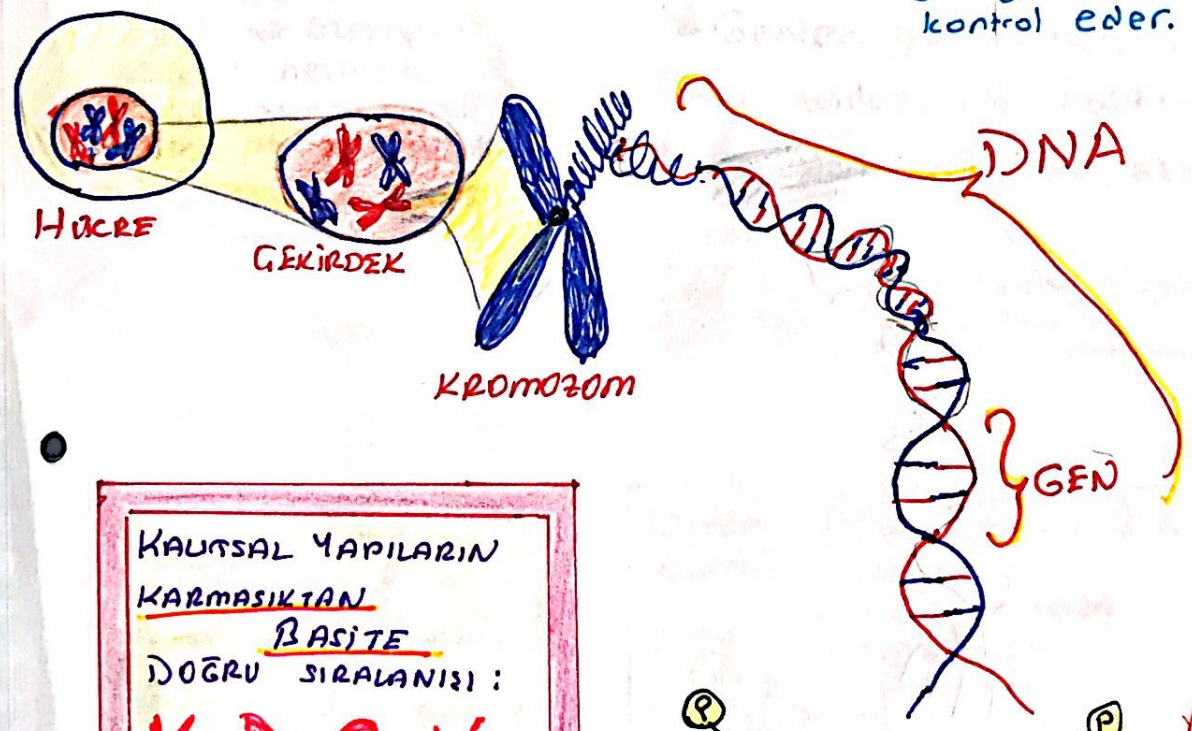 kontrol eder.
DNA
HÜCRE
ÇEKİRDEK
KROMOZOM
GEN
KALITSAL YAPILARIN
KARMAŞIKTAN
BASİTE
DOĞRU SIRALANIŞI:
K D G N
P P